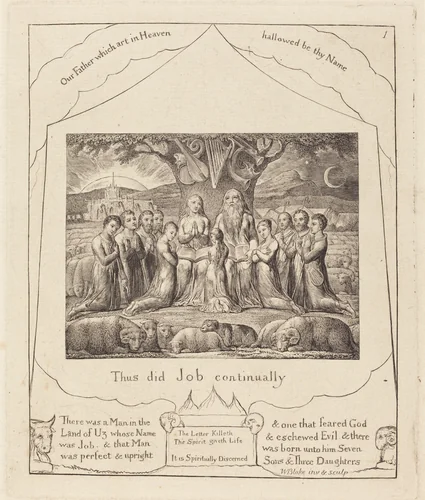 1
Our Father which art in Heaven
hallowed be thy Name
Thus did Job continually
There was a Man in the
Land of Uz whose Name
was Job. & that Man
was perfect & upright
The Letter Killeth
The Spirit giveth Life
It is Spiritually Discerned
& one that feared God
& eschewed Evil & there
was born unto him Seven
Sons & Three Daughters
WBlake inv & sculp